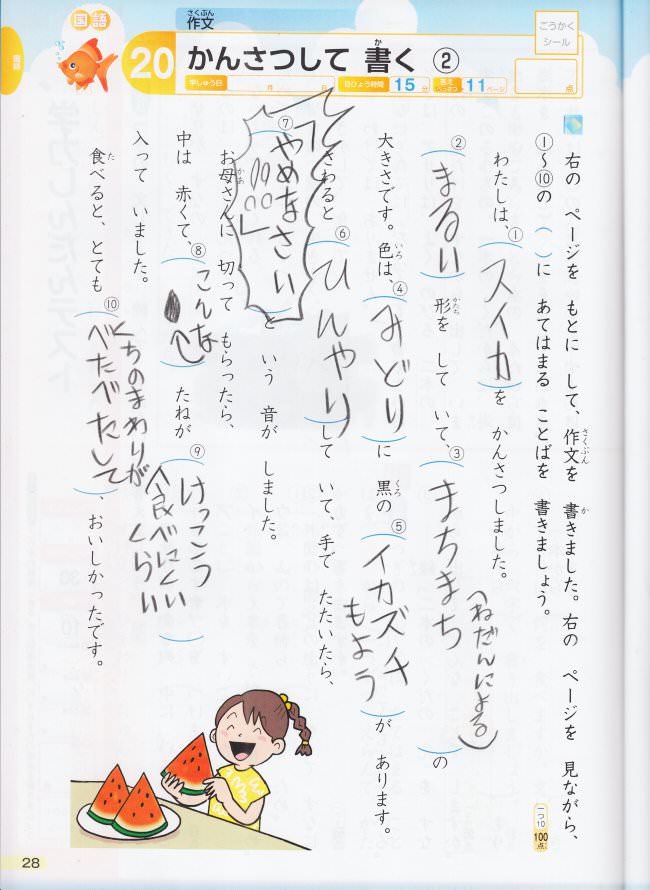 国語
さくぶん
作文
20 かんさつして 書く ②
か
ごうかく
シール
学しゅう日 月 日
目ひょう時間 15分
答え 11ページ
点
国語
右の ページを もとに して、作文を 書きました。右の ページを 見ながら、
さくぶん か
①〜⑩の( )に あてはまる ことばを 書きましょう。
一つ10
100点
わたしは、①(スイカ)を かんさつしました。
②(まるい)形を して いて、③(まちまち(ねだんによる))の
かたち
大きさです。色は、④(みどり)に 黒の ⑤(イカズチもよう)が あります。
いろ くろ
さわると ⑥(ひんやり)して いて、手で たたいたら、
⑦(「やめなさい」)と いう 音が しました。
お母さんに 切って もらったら、
かあ
中は 赤くて、⑧(こんな)たねが ⑨(けっこう食べにくいくらい)
入って いました。
食べると、とても ⑩(くちのまわりがべたべたして)、おいしかったです。
た
28